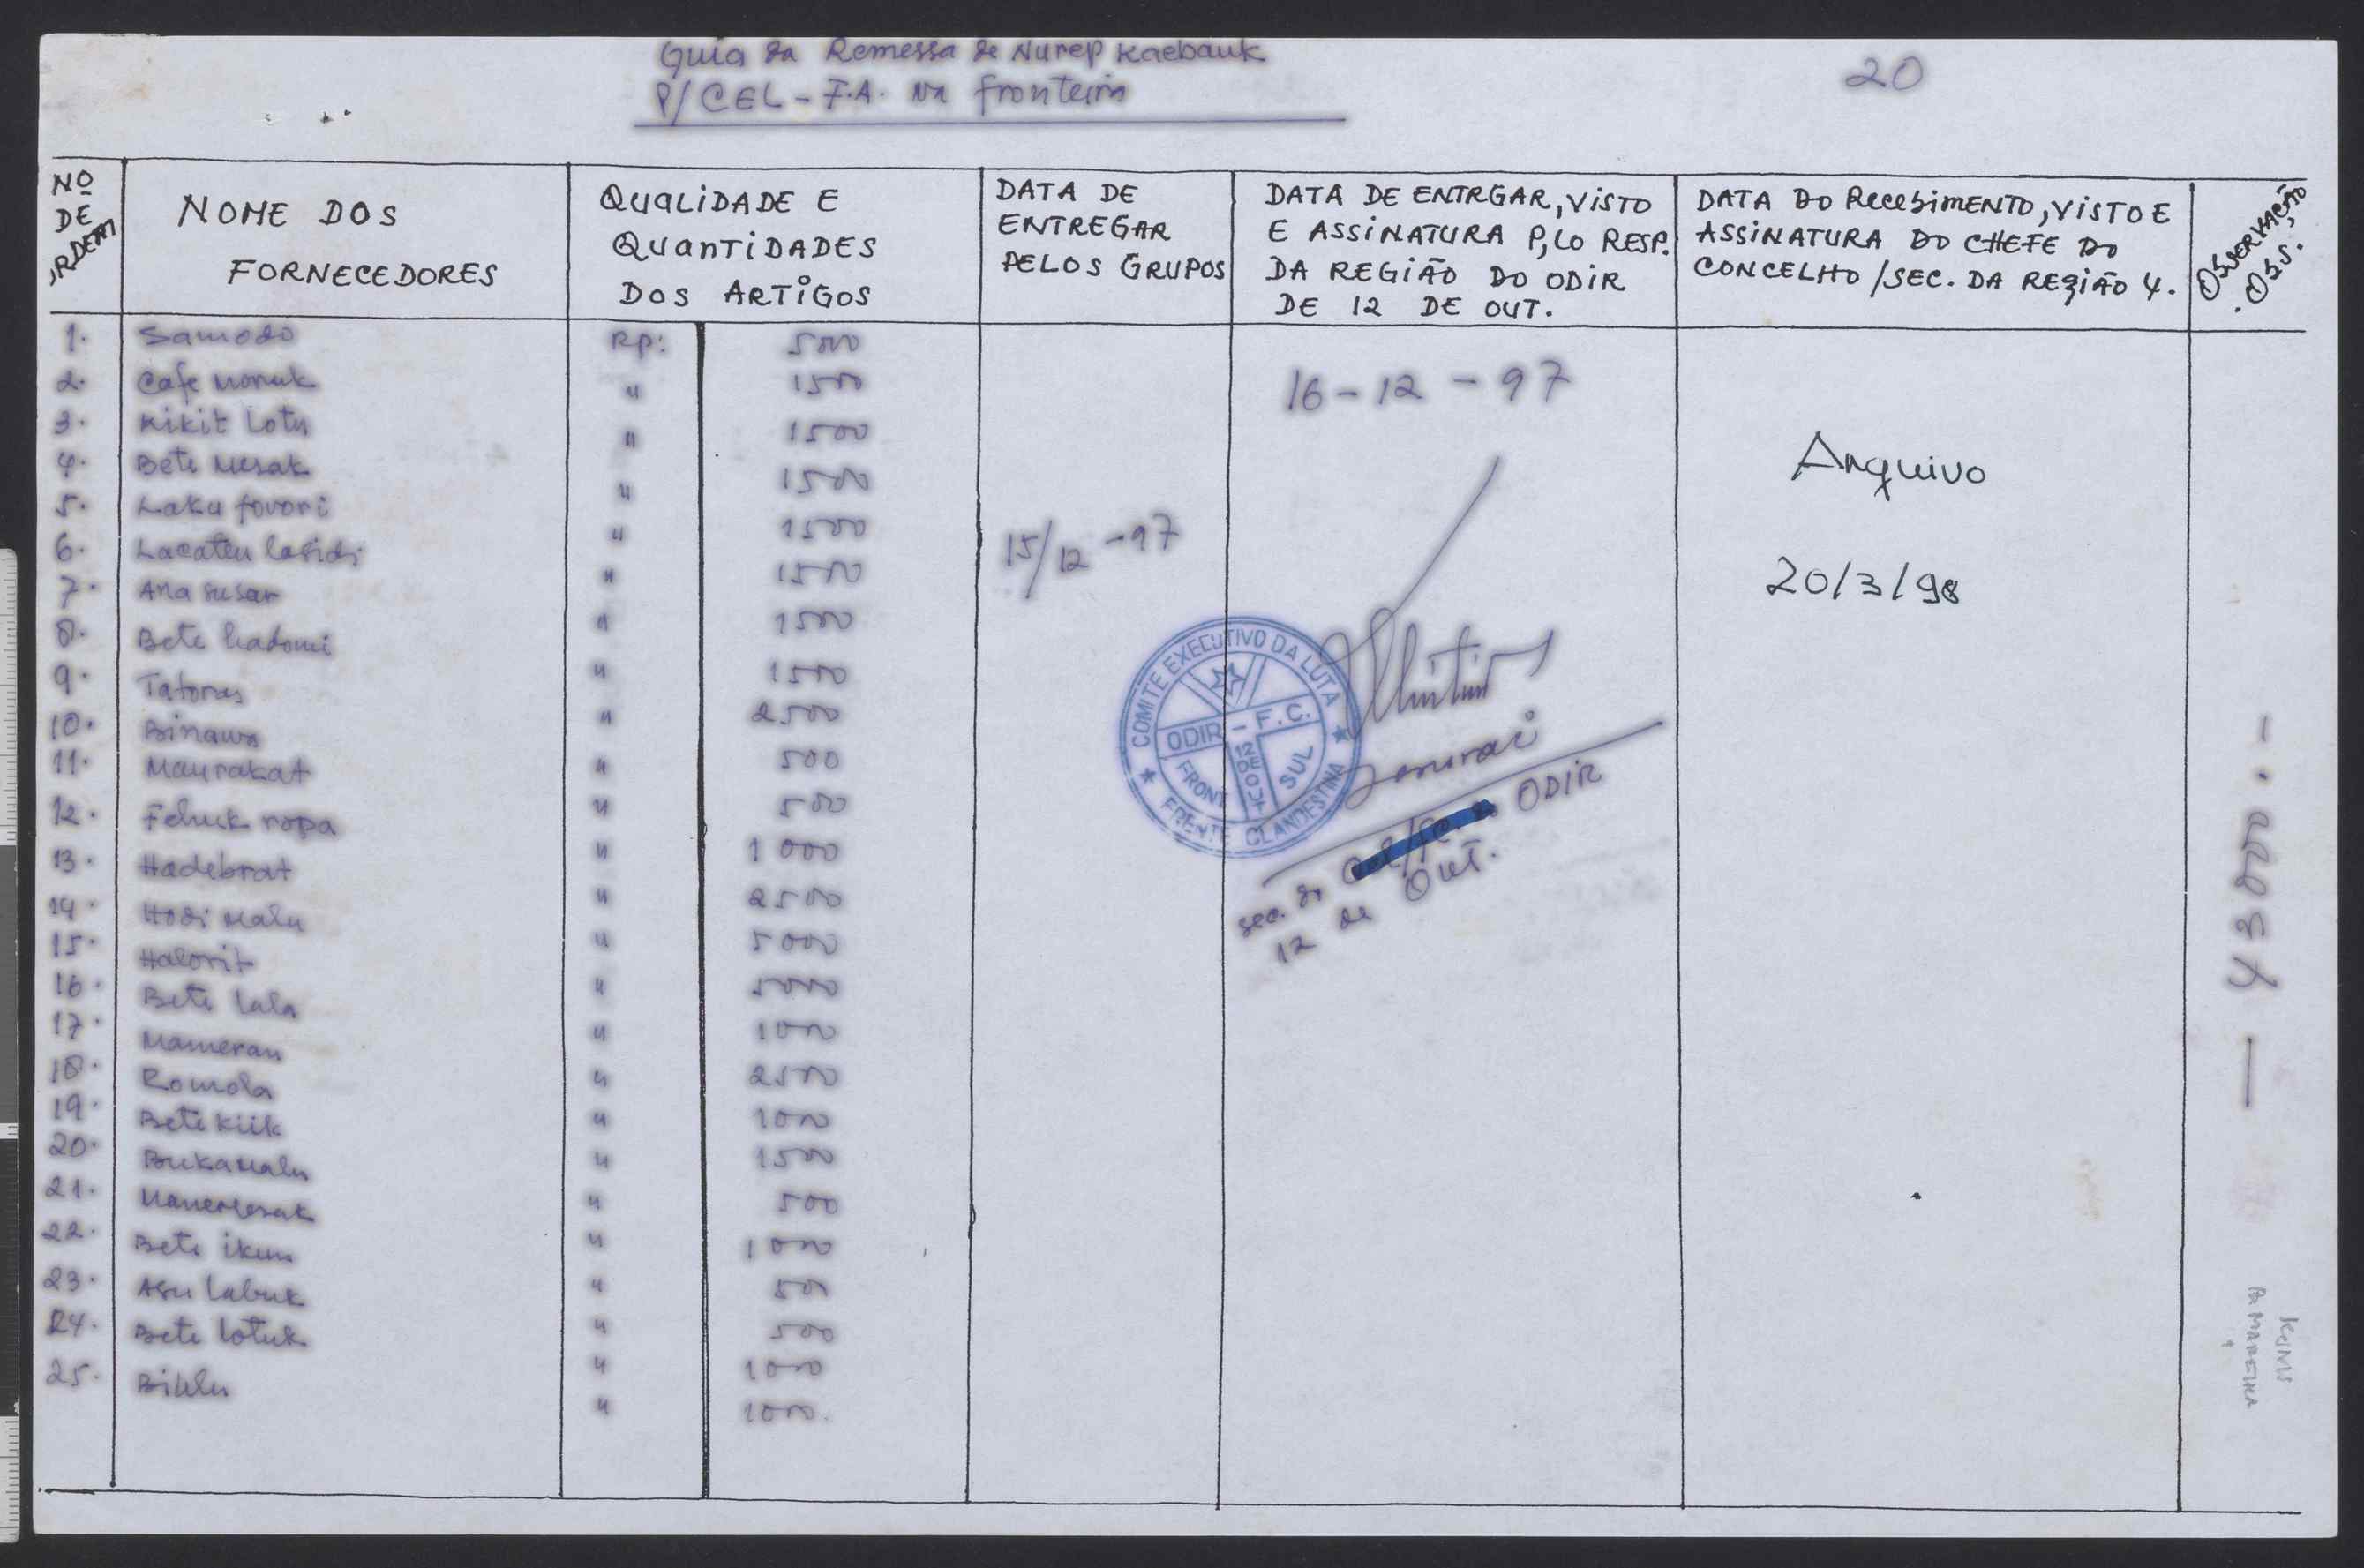 Guia da Remessa de Nurep Kaebauk
P/CEL - F.A. na fronteira
20
Nº DE ORDEM
NOME DOS FORNECEDORES
QUALIDADE E QUANTIDADES DOS ARTIGOS
DATA DE ENTREGAR PELOS GRUPOS
DATA DE ENTRGAR, VISTO E ASSINATURA P,LO RESP. DA REGIÃO DO ODIR DE 12 DE OUT.
DATA DO RecebiMENTO, VISTO E ASSINATURA DO CHEFE DO CONCELHO /SEC. DA REgiÃO 4.
OBSERVAÇÃO, OBS.
1. Samodo Rp: 500
2. Cafe Monuk " 1500
3. Kikit Lotu " 1500
4. Bete Mesak " 1500
5. Laku fovori " 1500
6. Lacateu lasidi " 1500
7. Ana susar " 1500
8. Bete hadomi " 1500
9. Tatoras " 2500
10. Binawa " 500
11. Maurakat " 500
12. Fehuk ropa " 1000
13. Hadebrat " 2500
14. Hodi Malu " 5000
15. Halorit " 5000
16. Bete Lala " 1000
17. Mameran " 2500
18. Romola " 1000
19. Bete Kiik " 1500
20. Bukamalu " 500
21. " 1000
22. Bete ikun " 500
23. Asu Labuk " 500
24. Bete lotuk " 1000
25. " 1000.
15/12 - 97
16 - 12 - 97
COMITÉ EXECUTIVO DA LUTA
FRENTE CLANDESTINA
ODIR - F.C.
FRONT SUL
12 DE OUT
Samurai
sec. do ODIR
12 de Out.
Arquivo
20/3/98